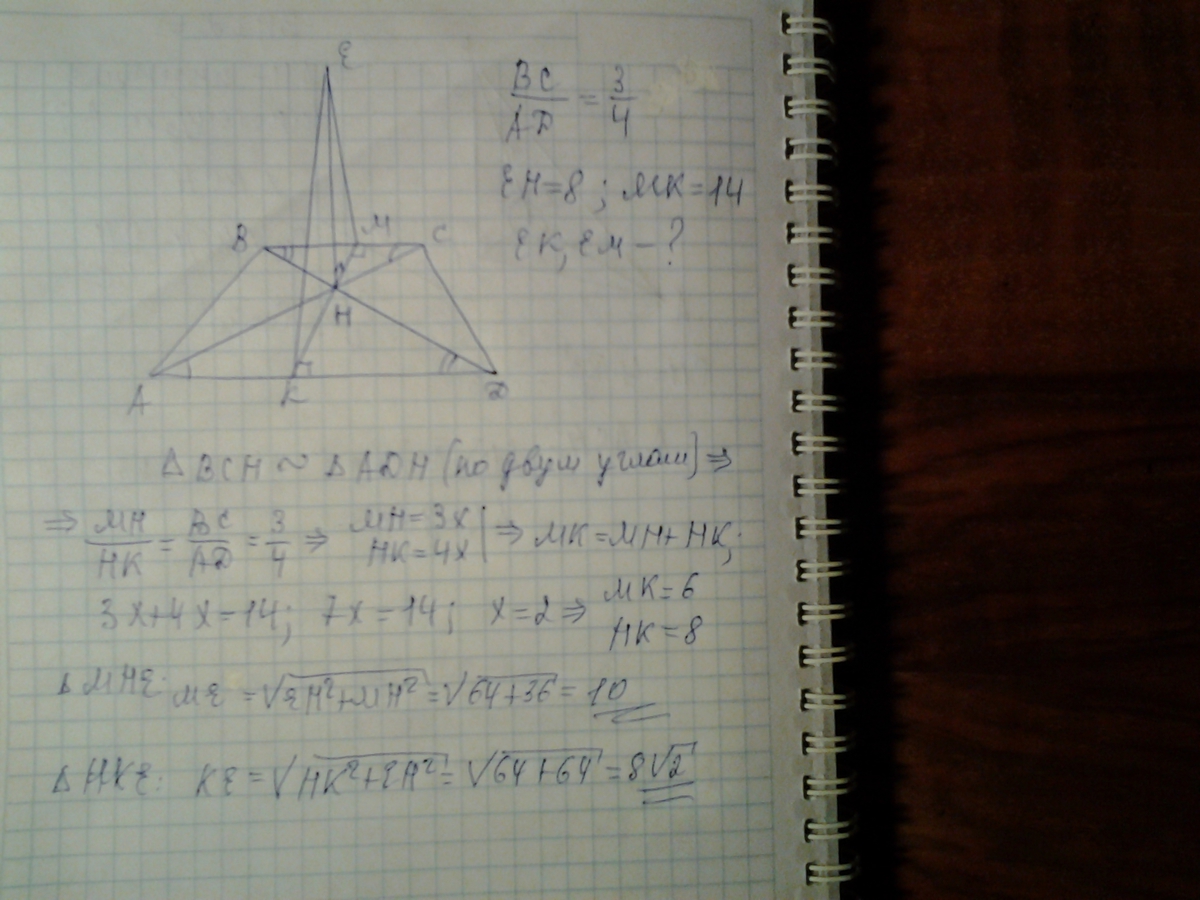 E
B M C
H
A K D
BC/AD = 3/4
EH=8 ; MK=14
EK, EM – ?
Δ BCH ~ Δ ADH (по двум углам) ⇒
⇒ MH/HK = BC/AD = 3/4 ⇒ MH=3x HK=4x | ⇒ MK=MH+HK;
3x+4x=14; 7x=14; x=2 ⇒ MK=6 HK=8
Δ MHE: ME = √EH²+MH² = √64+36 = 10
Δ HKE: KE = √HK²+EH² = √64+64 = 8√2